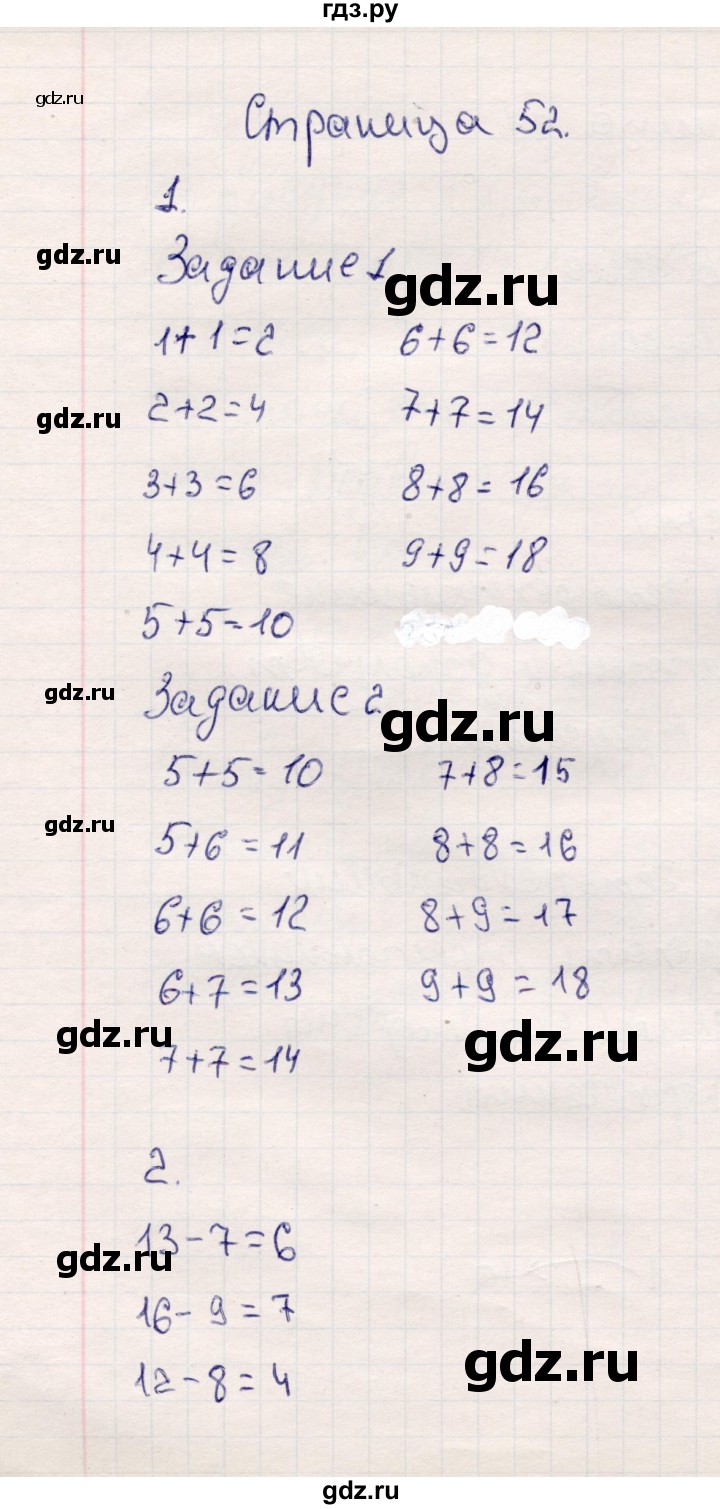 гдз.ру
gdz.ru
Страница 52.
1.
gdz.ru
Задание 1
gdz.ru
1+1=2 6+6=12
gdz.ru
2+2=4 7+7=14
3+3=6 8+8=16
4+4=8 9+9=18
5+5=10
gdz.ru
Задание 2
gdz.ru
5+5=10 7+8=15
gdz.ru
5+6=11 8+8=16
6+6=12 8+9=17
6+7=13 9+9=18
gdz.ru
gdz.ru
7+7=14
2.
13-7=6
gdz.ru
16-9=7
gdz.ru
12-8=4
gdz.ru